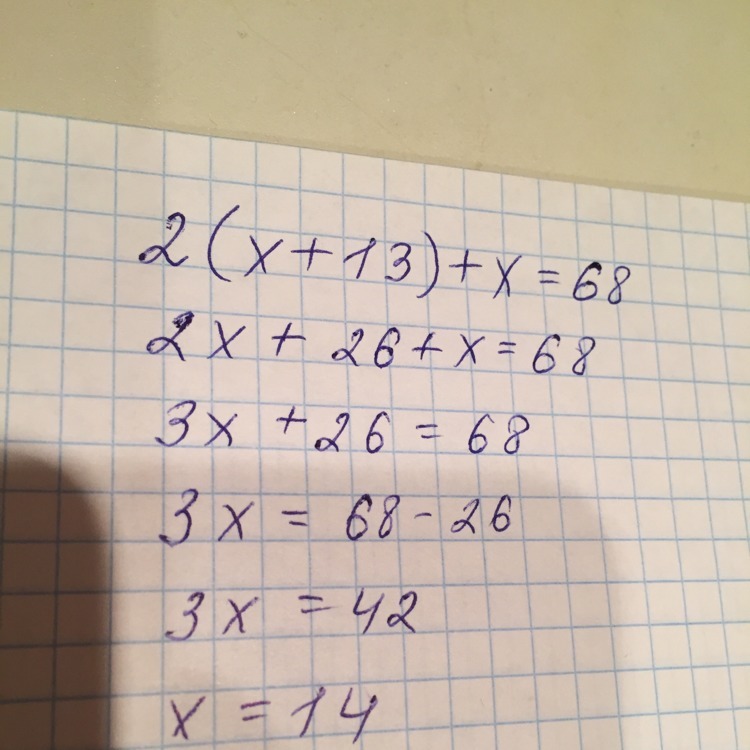 2(x+13)+x=68
2x+26+x=68
3x+26=68
3x=68-26
3x=42
x=14